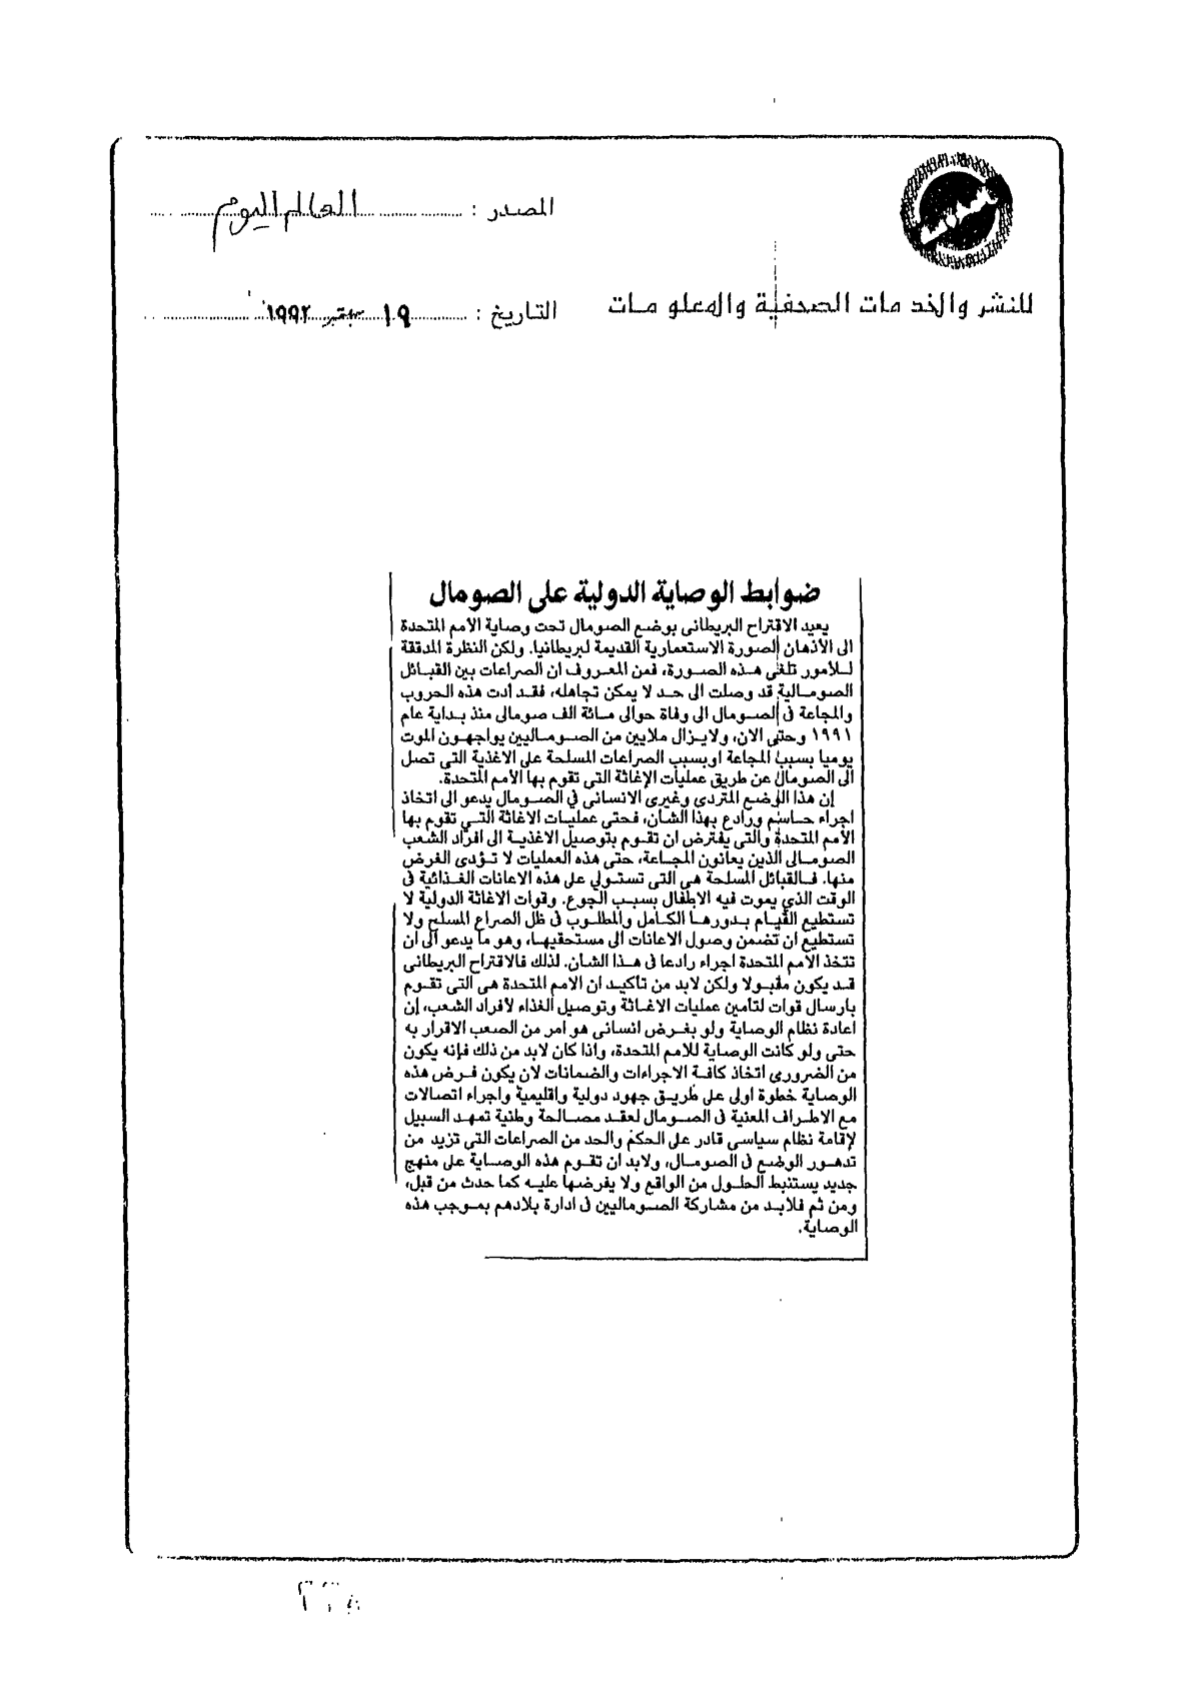 المصدر : العالم اليوم
للنشر والخدمات الصحفية والمعلومات
التاريخ : ١٩ سبتمبر ١٩٩٢
ضوابط الوصاية الدولية على الصومال
يعيد الاقتراح البريطانى بوضع الصومال تحت وصاية الأمم المتحدة
الى الأذهان الصورة الاستعمارية القديمة لبريطانيا. ولكن النظرة المدققة
للأمور تلغى هذه الصورة، فمن المعروف ان الصراعات بين القبائل
الصومالية قد وصلت الى حد لا يمكن تجاهله، فقد أدت هذه الحروب
والمجاعة فى الصومال الى وفاة حوالى مائة الف صومالى منذ بداية عام
١٩٩١ وحتى الان، ولايزال ملايين من الصوماليين يواجهون الموت
يوميا بسبب المجاعة اوبسبب الصراعات المسلحة على الاغذية التى تصل
الى الصومال عن طريق عمليات الإغاثة التى تقوم بها الأمم المتحدة.
إن هذا الوضع المتردى وغيرى الانسانى في الصومال يدعو الى اتخاذ
اجراء حاسم ورادع بهذا الشأن، فحتى عمليات الاغاثة التى تقوم بها
الأمم المتحدة والتى يفترض ان تقوم بتوصيل الاغذية الى افراد الشعب
الصومالى الذين يعانون المجاعة، حتى هذه العمليات لا تؤدى الغرض
منها. فالقبائل المسلحة هى التى تستولي على هذه الاعانات الغذائية فى
الوقت الذي يموت فيه الاطفال بسبب الجوع. وقوات الاغاثة الدولية لا
تستطيع القيام بدورها الكامل والمطلوب فى ظل الصراع المسلح ولا
تستطيع ان تضمن وصول الاعانات الى مستحقيها، وهو ما يدعو الى أن
تتخذ الأمم المتحدة اجراء رادعا فى هذا الشأن. لذلك فالاقتراح البريطانى
قد يكون مقبولا ولكن لابد من تأكيد ان الامم المتحدة هى التى تقوم
بارسال قوات لتأمين عمليات الاغاثة وتوصيل الغذاء لأفراد الشعب، إن
اعادة نظام الوصاية ولو بغرض انسانى هو امر من الصعب الاقرار به
حتى ولو كانت الوصاية للامم المتحدة، واذا كان لابد من ذلك فإنه يكون
من الضرورى اتخاذ كافة الاجراءات والضمانات لان يكون فرض هذه
الوصاية خطوة اولى على طريق جهود دولية واقليمية واجراء اتصالات
مع الاطراف المعنية فى الصومال لعقد مصالحة وطنية تمهد السبيل
لإقامة نظام سياسى قادر على الحكم والحد من الصراعات التى تزيد من
تدهور الوضع فى الصومال، ولابد ان تقوم هذه الوصاية على منهج
جديد يستنبط الحلول من الواقع ولا يفرضها عليه كما حدث من قبل،
ومن ثم فلابد من مشاركة الصوماليين فى ادارة بلادهم بموجب هذه
الوصاية.